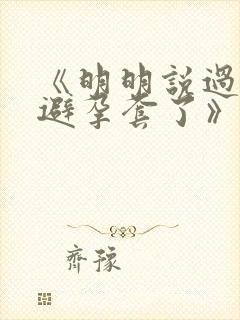 《明明説過
避孕套了》
齊豫